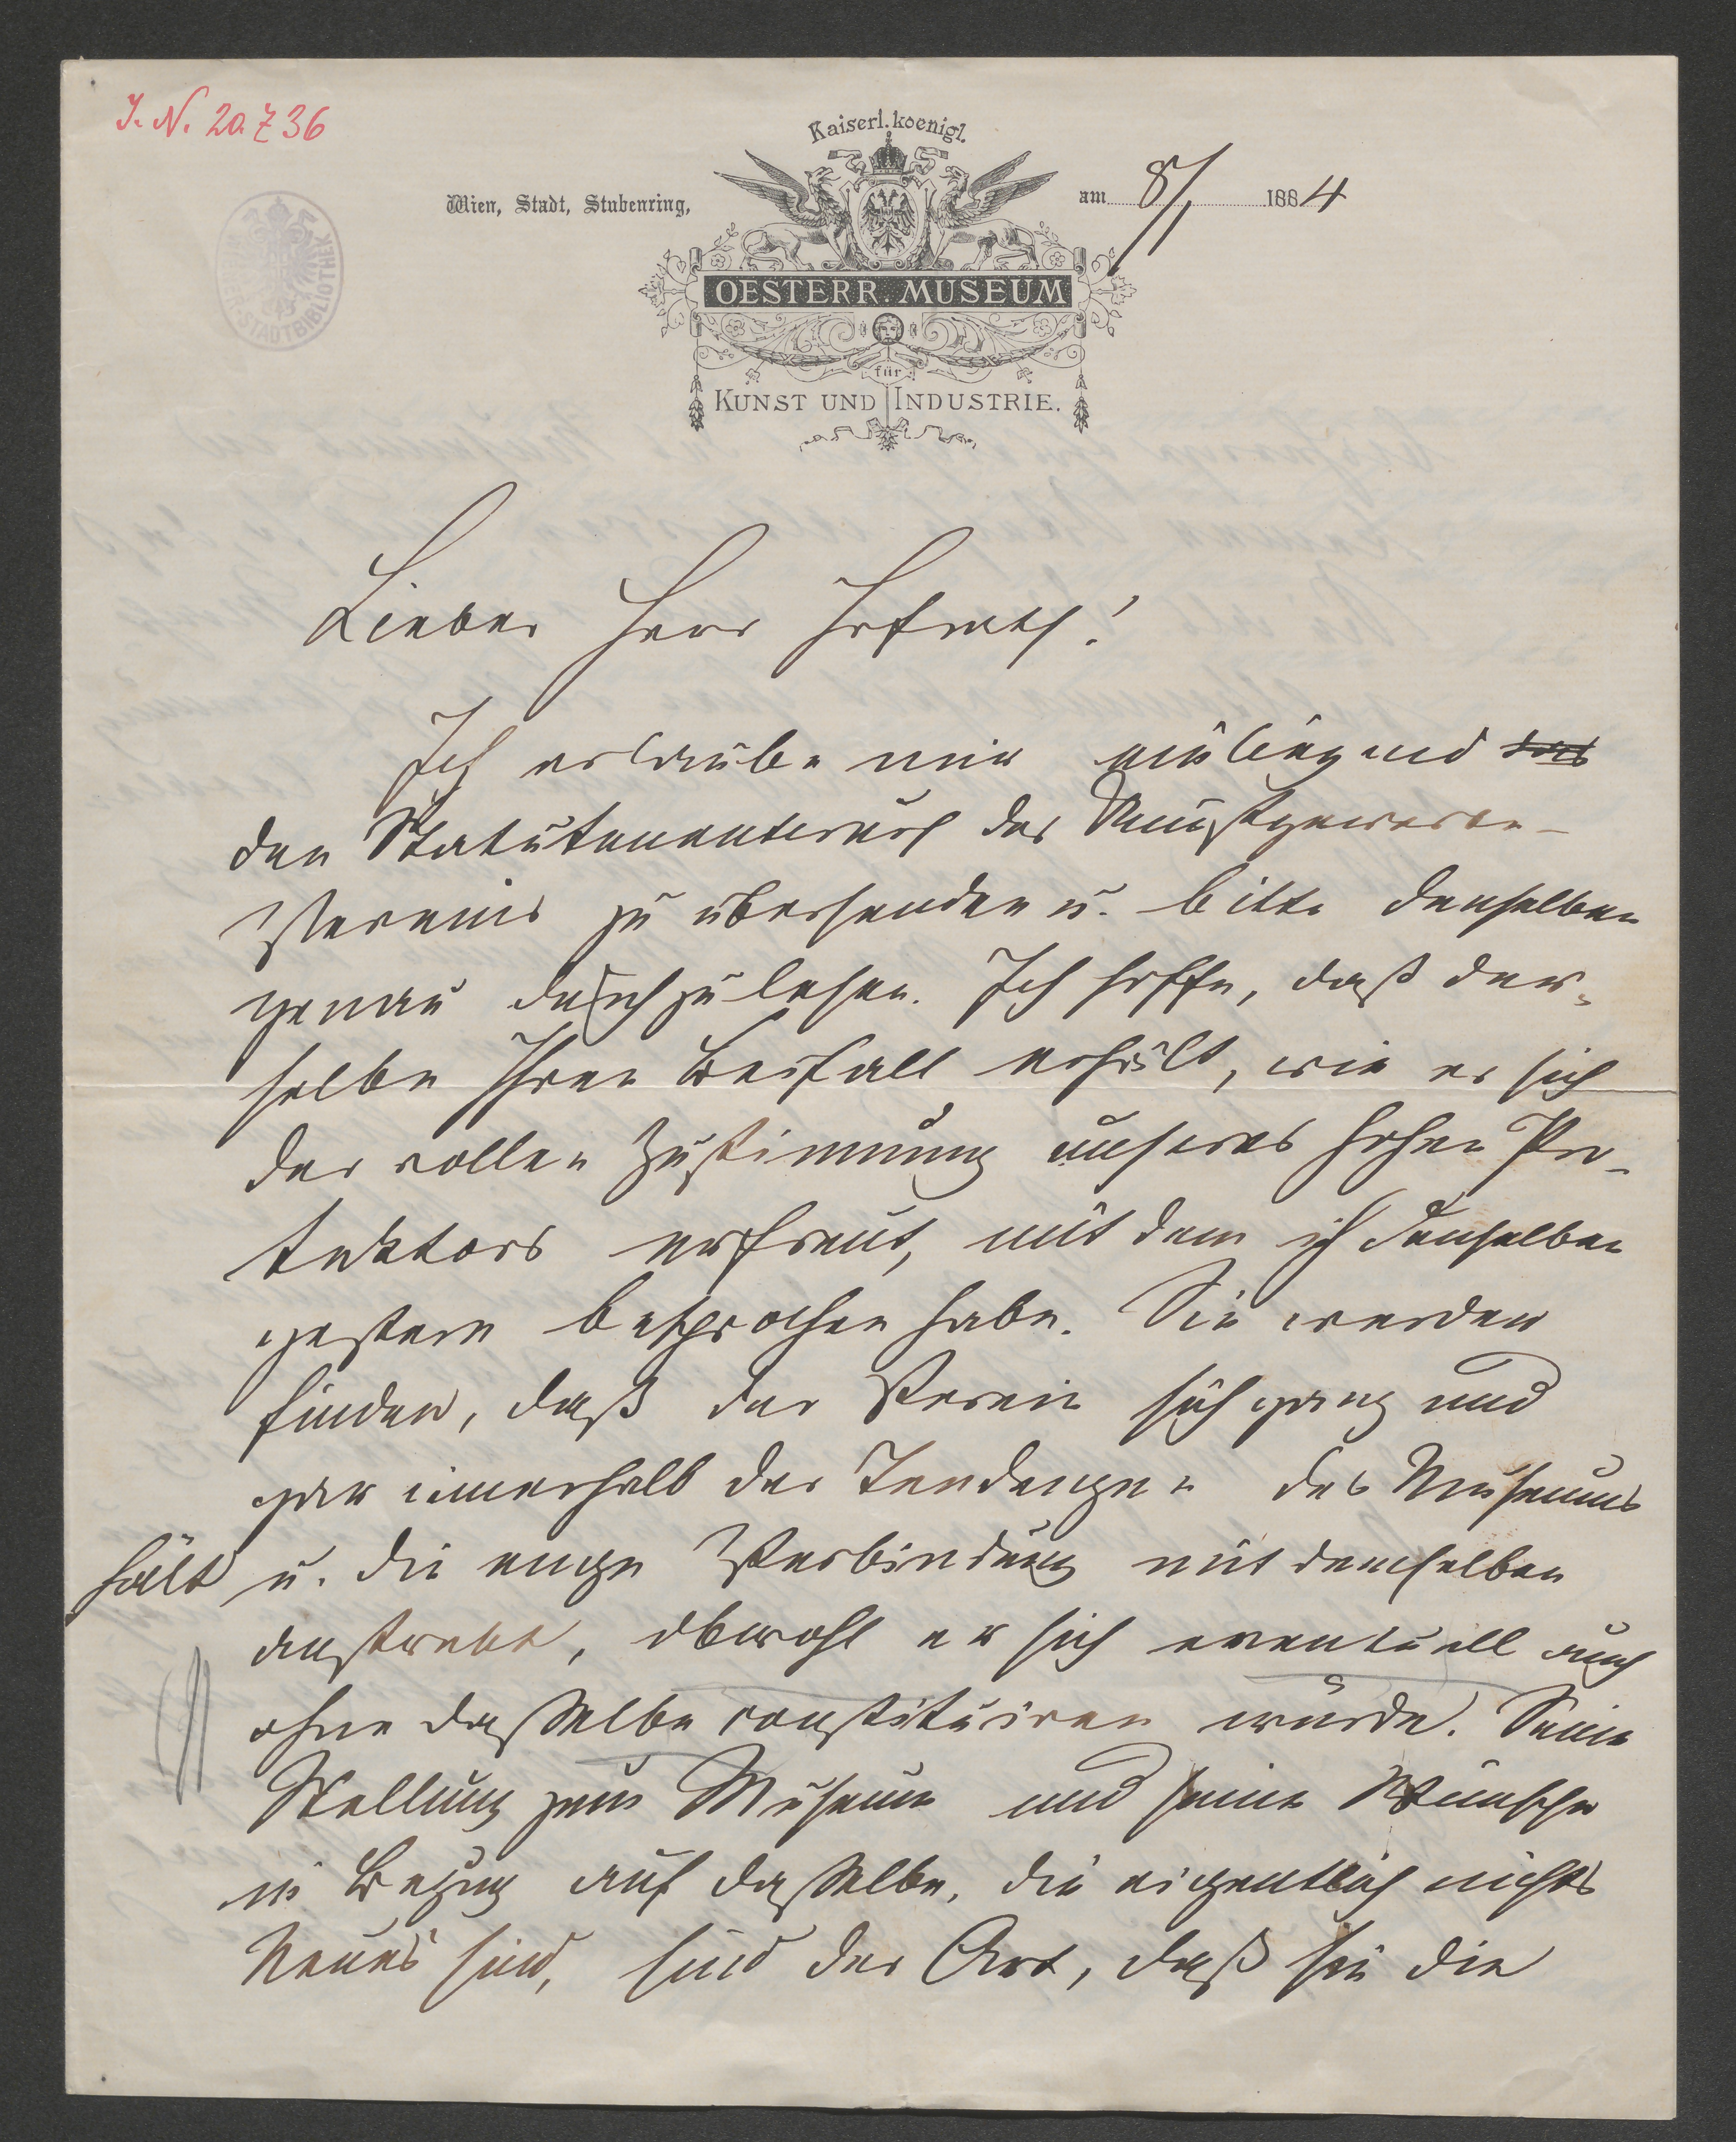 J. N. 20.736
Kaiserl. koenigl.
Wien, Stadt, Stubenring,
am 8/1 1884
STADTBIBLIOTHEK
OESTERR. MUSEUM
für
KUNST UND INDUSTRIE.
Lieber Herr Hofrath!
Ich erlaube mir anliegend
den Statutenentwurf des Kunstgewerbe-
Vereins zu übersenden u. bitte denselben
genau durchzulesen. Ich hoffe, daß der-
selbe Ihren Beifall erhält, wie er sich
der vollen Zustimmung unseres hohen Pro-
tektors erfreut, mit dem ich denselben
gestern besprochen habe. Sie werden
finden, daß der Verein sich ganz und
gar innerhalb der Tendenzen des Museums
hält u. die enge Verbindung mit demselben
anstrebt, obwohl er sich eventuell auch
ohne dasselbe constituiren würde. Seine
Stellung zum Museum und seine Wünsche
in Bezug auf dasselbe, die eigentlich nichts
Neues sind, sind der Art, daß sie die